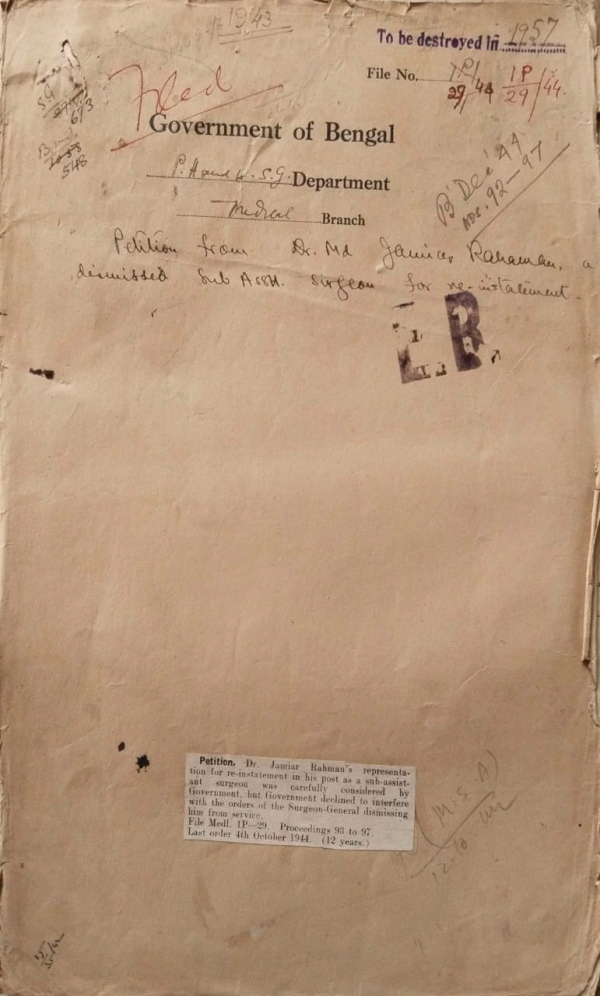 1943
To be destroyed in 1957
File No. 1P/29/44 1P/29/44.
Filed
Government of Bengal
P. H and L. S. G. Department
Medical Branch
B' Dec' 44
nos. 92-97
Petition from Dr. Md Jamiar Rahaman, a
dismissed Sub Asst. Surgeon for re-instatement.
Petition. Dr. Jamiar Rahman's representa-
tion for re-instatement in his post as a sub-assist-
ant surgeon was carefully considered by
Government, but Government declined to interfere
with the orders of the Surgeon-General dismissing
him from service.
File Medl. 1P—29. Proceedings 93 to 97.
Last order 4th October 1944. (12 years.)
(M. S. A)